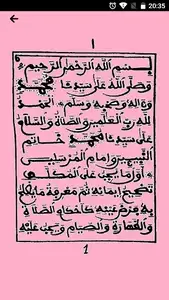 20:35
١
بسم الله الرحمن الرحيم
وصلى الله على سيدنا محمد
وآله وصحبه وسلم الحمد
لله رب العلمين والصلاة والسلام
على سيدنا محمد خاتم
النبيين وإمام المرسلين
أول ما يجب على المكلف
تصحيح إيمانه ثم معرفة ما يصلح
به فرض عينه كأحكام الصلاة
والطهارة والصيام ويجب عليه
1